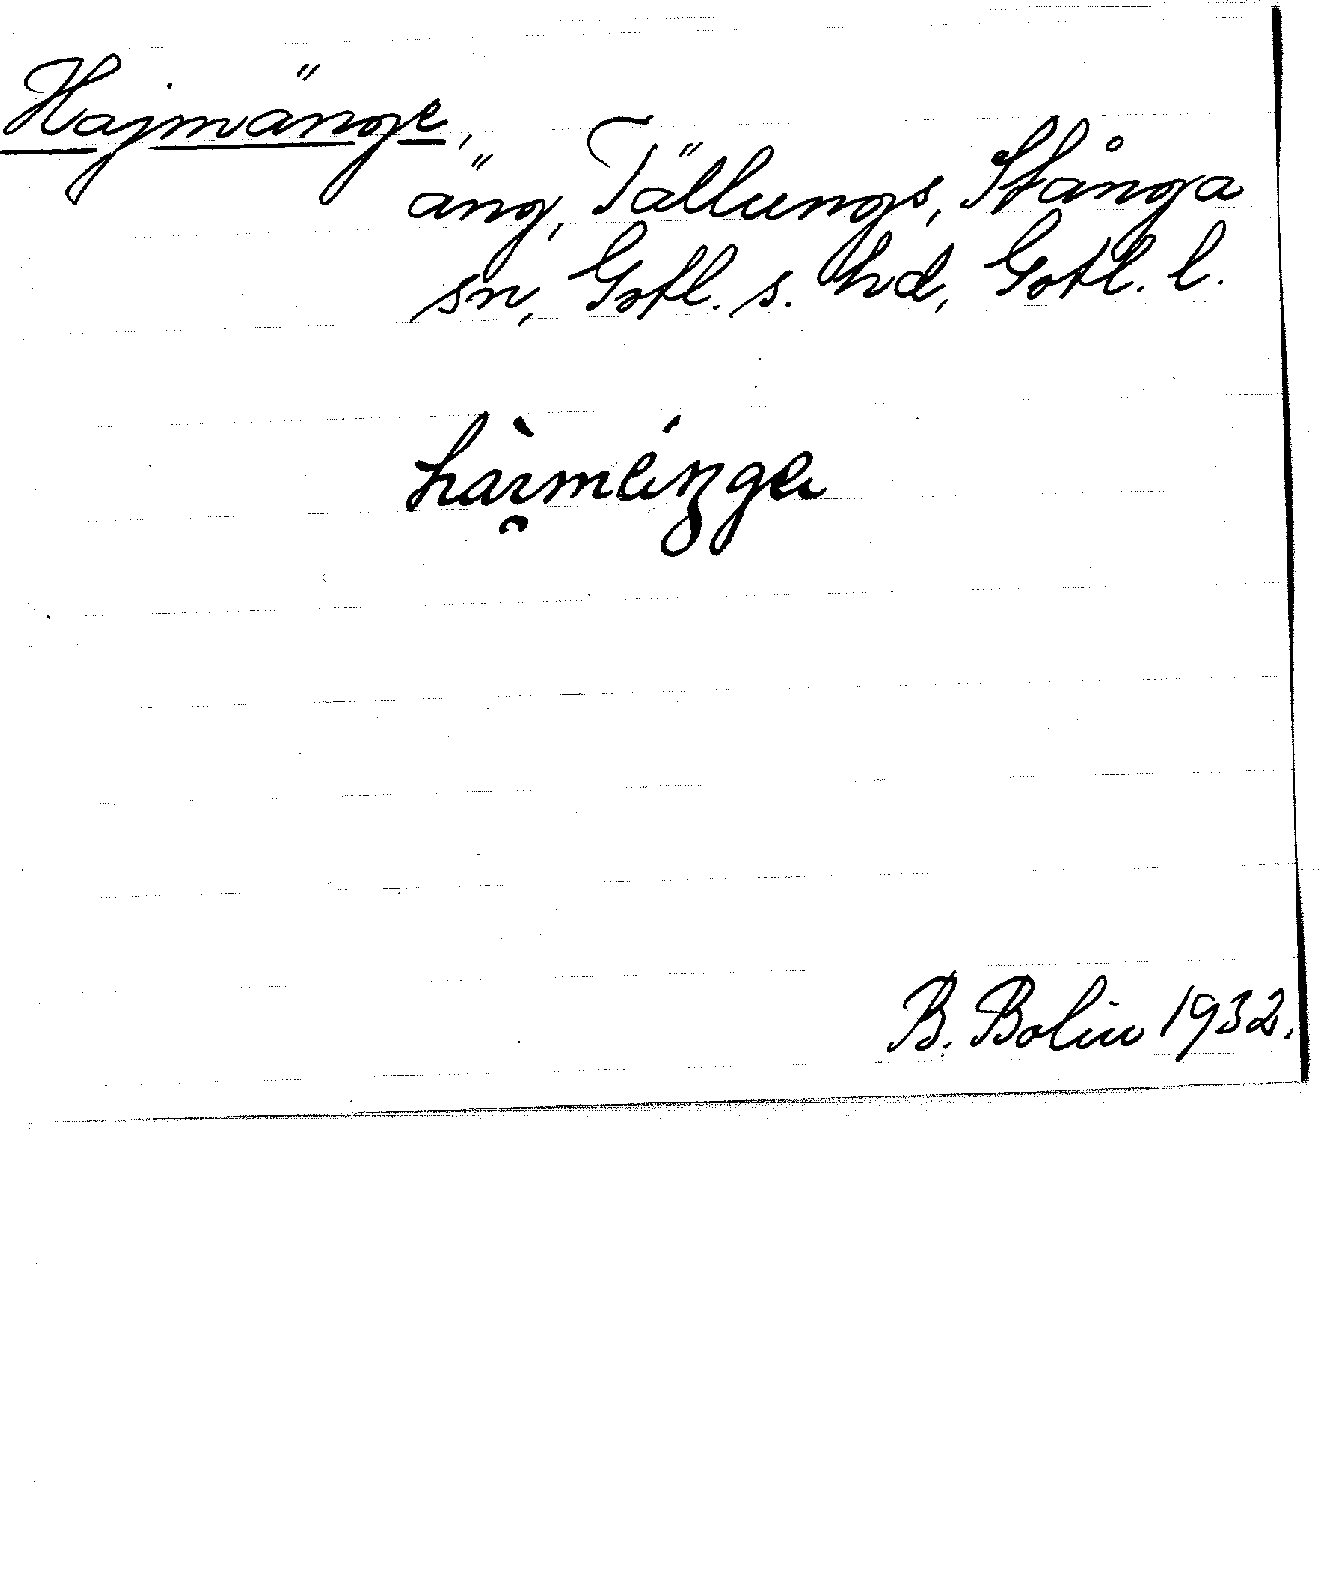 Hajmänge,
äng, Tällungs, Stånga
sn, Gotl. s. hd, Gotl. l.
hàı̯mä́ŋgɐ
B. Bolin 1932.